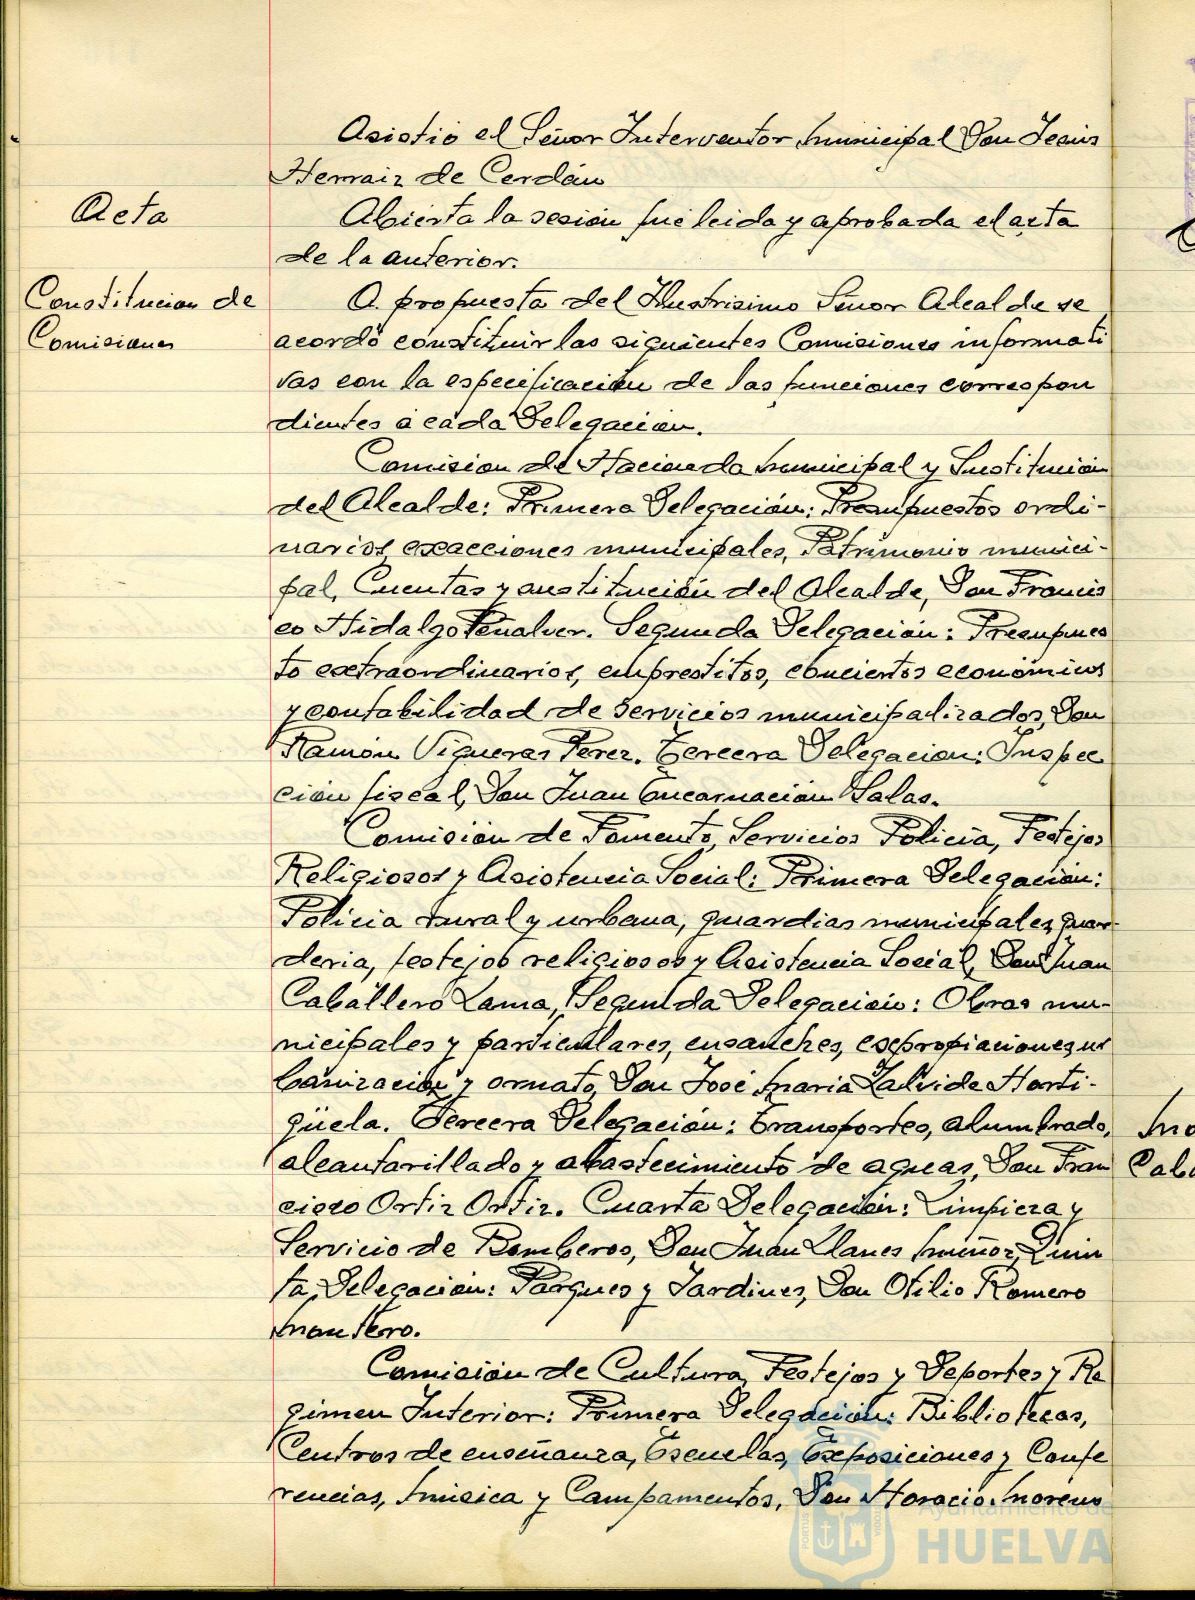 Asistió el Señor Interventor Municipal Don Jesús
Herraiz de Cerdán
Acta
Abierta la sesión fué leida y aprobada el acta
de la anterior.
Constitucion de
Comisiones
A propuesta del Ilustrisimo Señor Alcalde se
acordó constituir las siguientes Comisiones informati
vas con la especificación de las funciones correspon
dientes a cada Delegación.
Comision de Hacienda Municipal y Sustitución
del Alcalde: Primera Delegación: Presupuestos ordi-
narios, exacciones municipales, Patrimonio munici-
pal, Cuentas y sustitución del Alcalde, Don Francis
co Hidalgo Peñalver. Segunda Delegación: Presupues
to extraordinarios, emprestitos, conciertos económicos
y contabilidad de servicios municipalizados, Don
Ramón Vigueras Perez. Tercera Delegacion: Inspec
ción fiscal, Don Juan Encarnación Salas.
Comisión de Fomento, Servicios Policía, Festejos
Religiosos y Asistencia Social: Primera Delegación:
Policia rural y urbana, guardias municipales, guar-
deria, festejos religiosos y Asistencia Social, Don Juan
Caballero Lama, Segunda Delegación: Obras mu-
nicipales y particulares, ensanches, expropiaciones, ur
banización y ornato, Don José Maria Zalvide Horti-
güela. Tercera Delegación: Transportes, alumbrado,
alcantarillado y abastecimiento de aguas, Don Fran
cisco Ortiz Ortiz. Cuarta Delegación: Limpieza y
Servicio de Bomberos, Don Juan Llanes Muñoz, Quin
ta, Delegación: Parques y Jardines, Don Otilio Romero
Montero.
Comisión de Cultura, Festejos y Deportes y Ré
gimen Interior: Primera Delegación: Bibliotecas,
Centros de enseñanza, Escuelas, Exposiciones y Confe
rencias, Música y Campamentos, Don Horacio Moreno
Ayuntamiento de
HUELVA